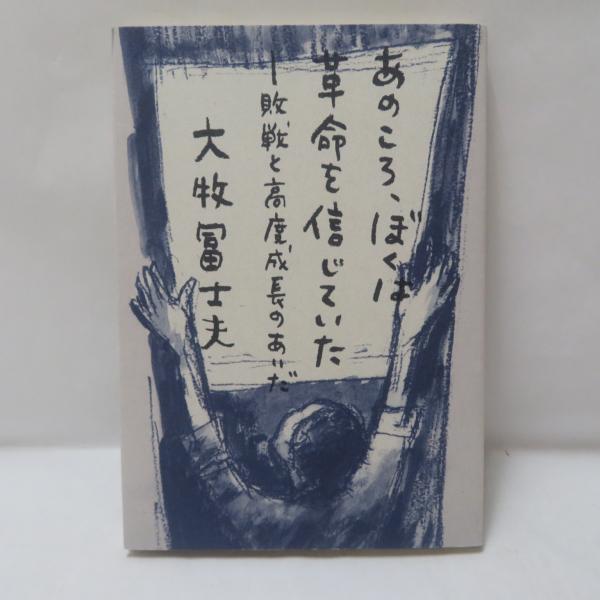 あのころ、ぼくは
革命を信じていた
―敗戦と高度成長のあいだ
大牧冨士夫